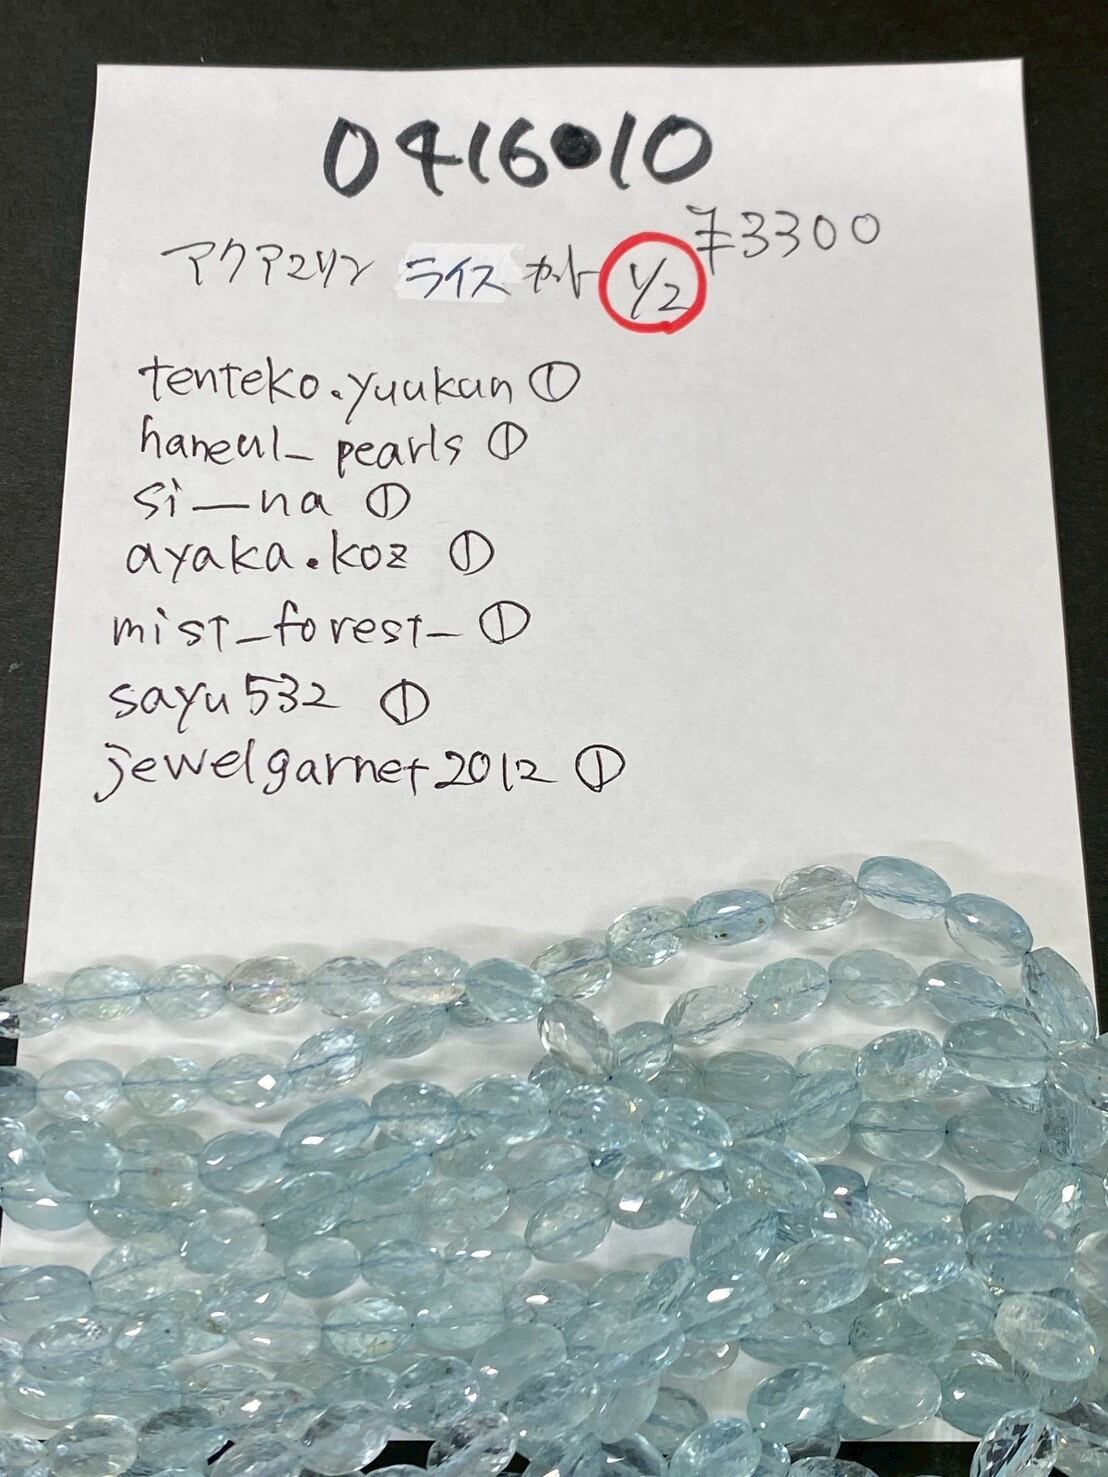 0416●10
¥3300
アクアマリン ライス カット 1/2
tenteko.yuukan ①
haneul_pearls ①
si__na ①
ayaka.koz ①
mist_forest_ ①
sayu532 ①
jewelgarnet2012 ①